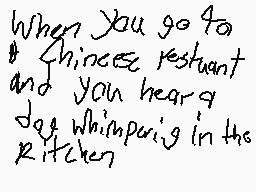 When you go to
a Chineese restuant
and you hear a
dog whimpering in the
kitchen